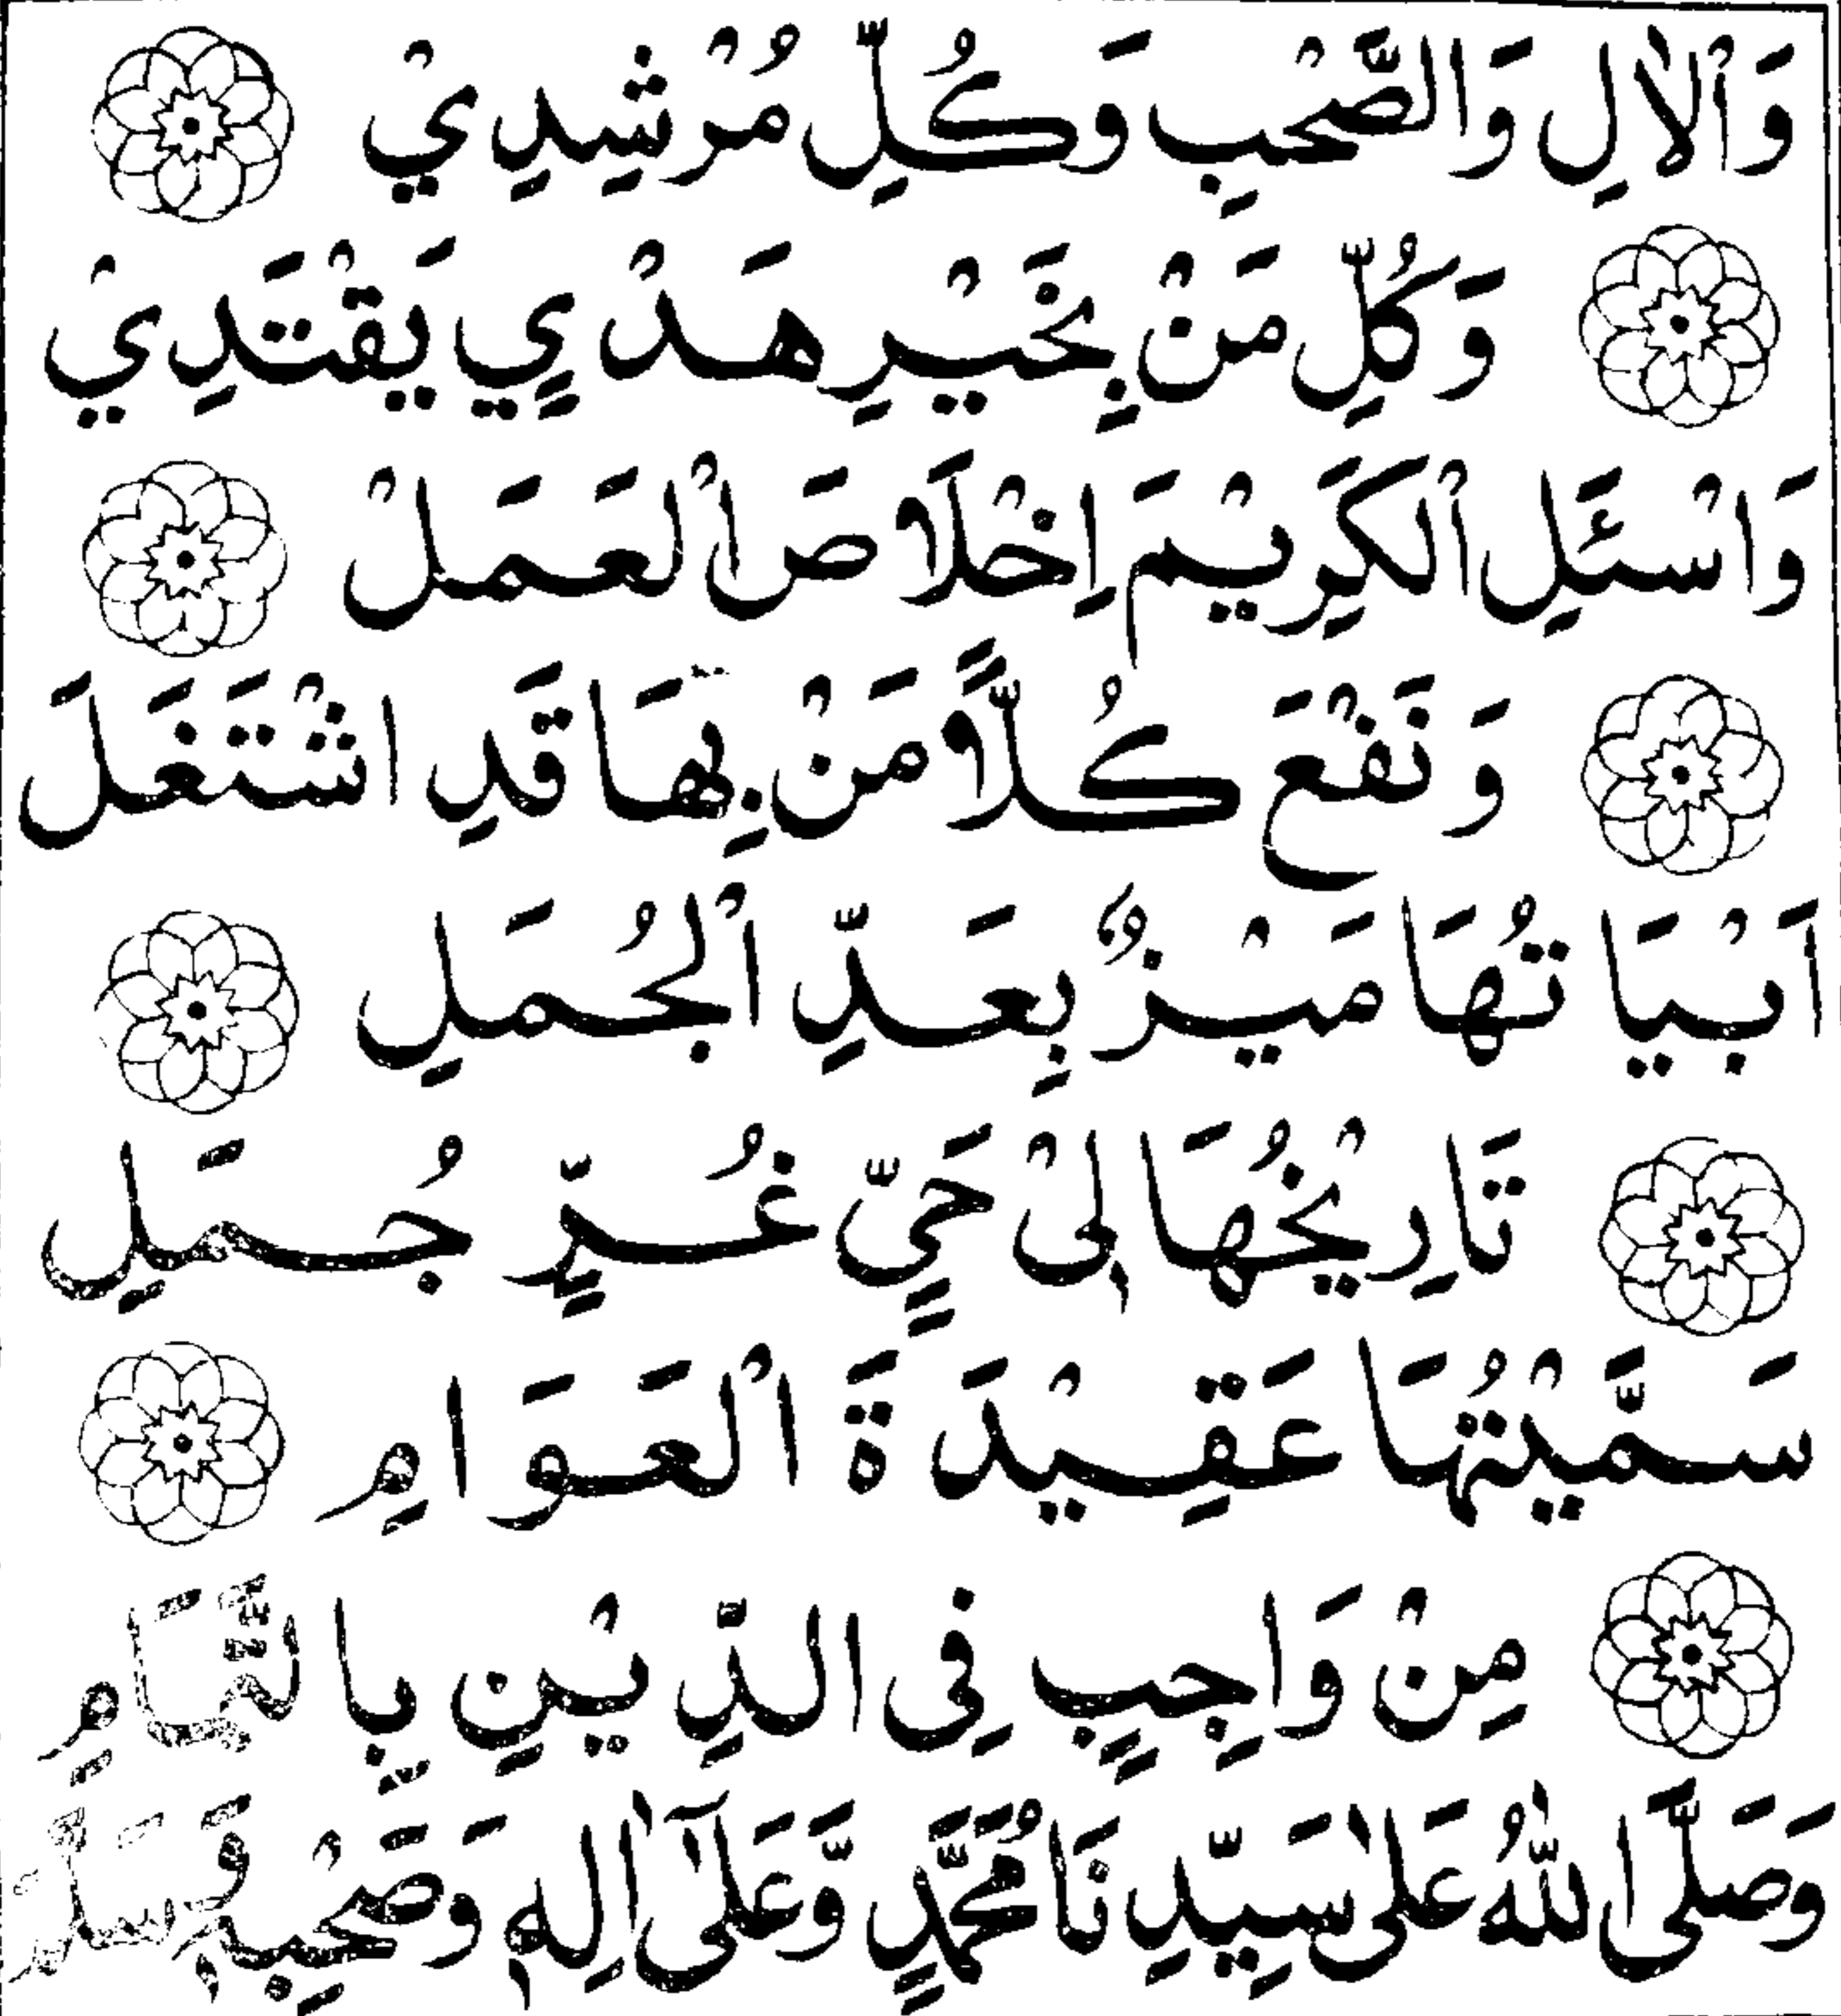 وَاْلاٰلِ وَالصَّحْبِ وَكُلِّ مُرْشِدِيْ
وَكُلِّ مَنْ بِخَيْرِ هَدْيٍ يَقْتَدِيْ
وَاسْئَلِ اْلكَرِيْمَ اِخْلَاصَ اْلعَمَلْ
وَنَفْعَ كُلًّا مَنْ بِهَا قَدِ اشْتَغَلَ
اَبْيَاتُهَا مَيْزٌ بِعَدِّ اْلجُمَلِ
تَارِيْخُهَا لِىْ حَيٍّ غُرٍّ جُمَلِ
سَمَّيْتُهَا عَقِيْدَةَ اْلعَوَامِ
مِنْ وَاجِبٍ فِى الدِّيْنِ بِالتَّمَامِ
وَصَلَّى اللّٰهُ عَلٰى سَيِّدِنَا مُحَمَّدٍ وَّعَلٰىٓ اٰلِهٖ وَصَحْبِهٖ وَسَلَّمَ